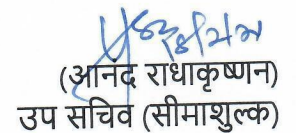 (आनंद राधाकृष्णन)
उप सचिव (सीमाशुल्क)